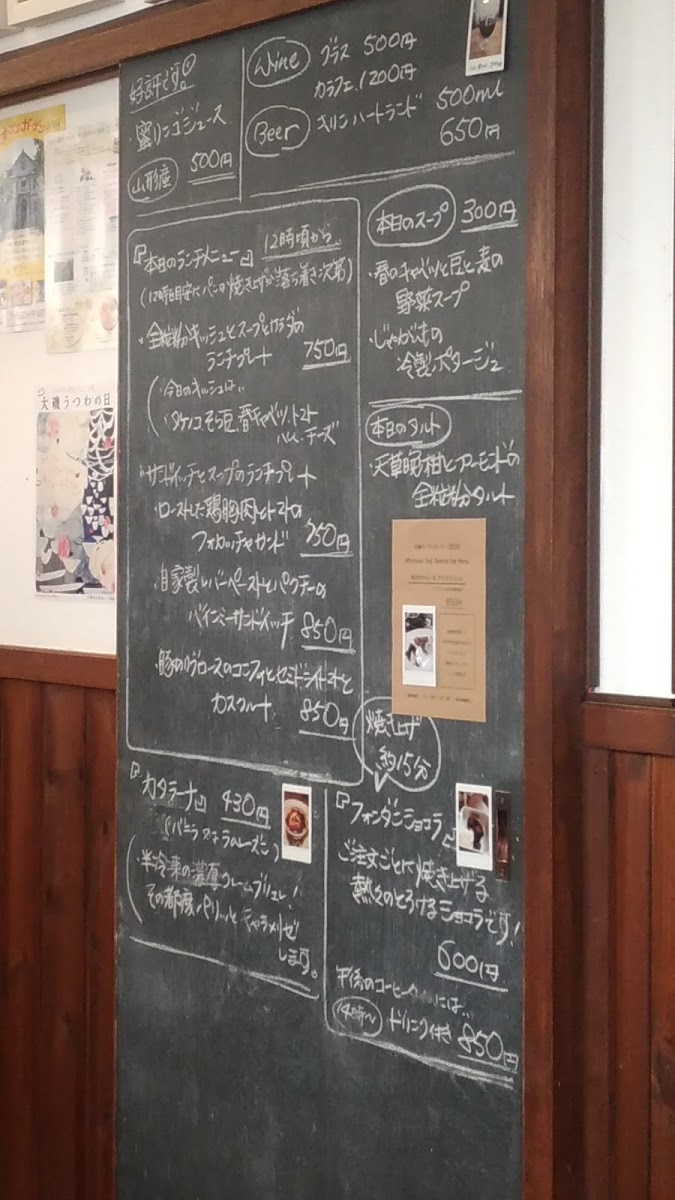 好評です。
・蜜リンゴジュース
山形産 500円
Wine グラス 500円
カラフェ 1200円
Beer キリンハートランド 500ml
650円
『本日のランチメニュー』 12時頃から
(12時目安にパンの焼き上げが落ち着き次第)
・全粒粉キッシュとスープとサラダの
ランチプレート 750円
今日のキッシュは..
タケノコ.そら豆.春キャベツ.トマト
ハム.チーズ
・サンドイッチとスープのランチプレート
・ローストした鶏胸肉とトマトの
フォカッチャサンド 750円
・自家製レバーペーストとパクチーの
バインミーサンドイッチ 850円
・豚肩リブロースのコンフィとセミドライトマトと
カスクルート 850円
本日のスープ 300円
・春のキャベツと豆と麦の
野菜スープ
・じゃがいもの
冷製ポタージュ
本日のタルト
・天草晩柑とアーモンドの
全粒粉タルト
大磯うつわの日
『カタラーナ』 430円
(バニラ or ラムレーズン)
・半冷凍の濃厚クレームブリュレ!
その都度パリッとキャラメリゼ
します。
焼き上げ
約15分
『フォンダンショコラ』
ご注文ごとに焼き上げる
熱々のとろけるショコラです!
600円
午後のコーヒー
には..
14時〜 ドリンク付き 850円